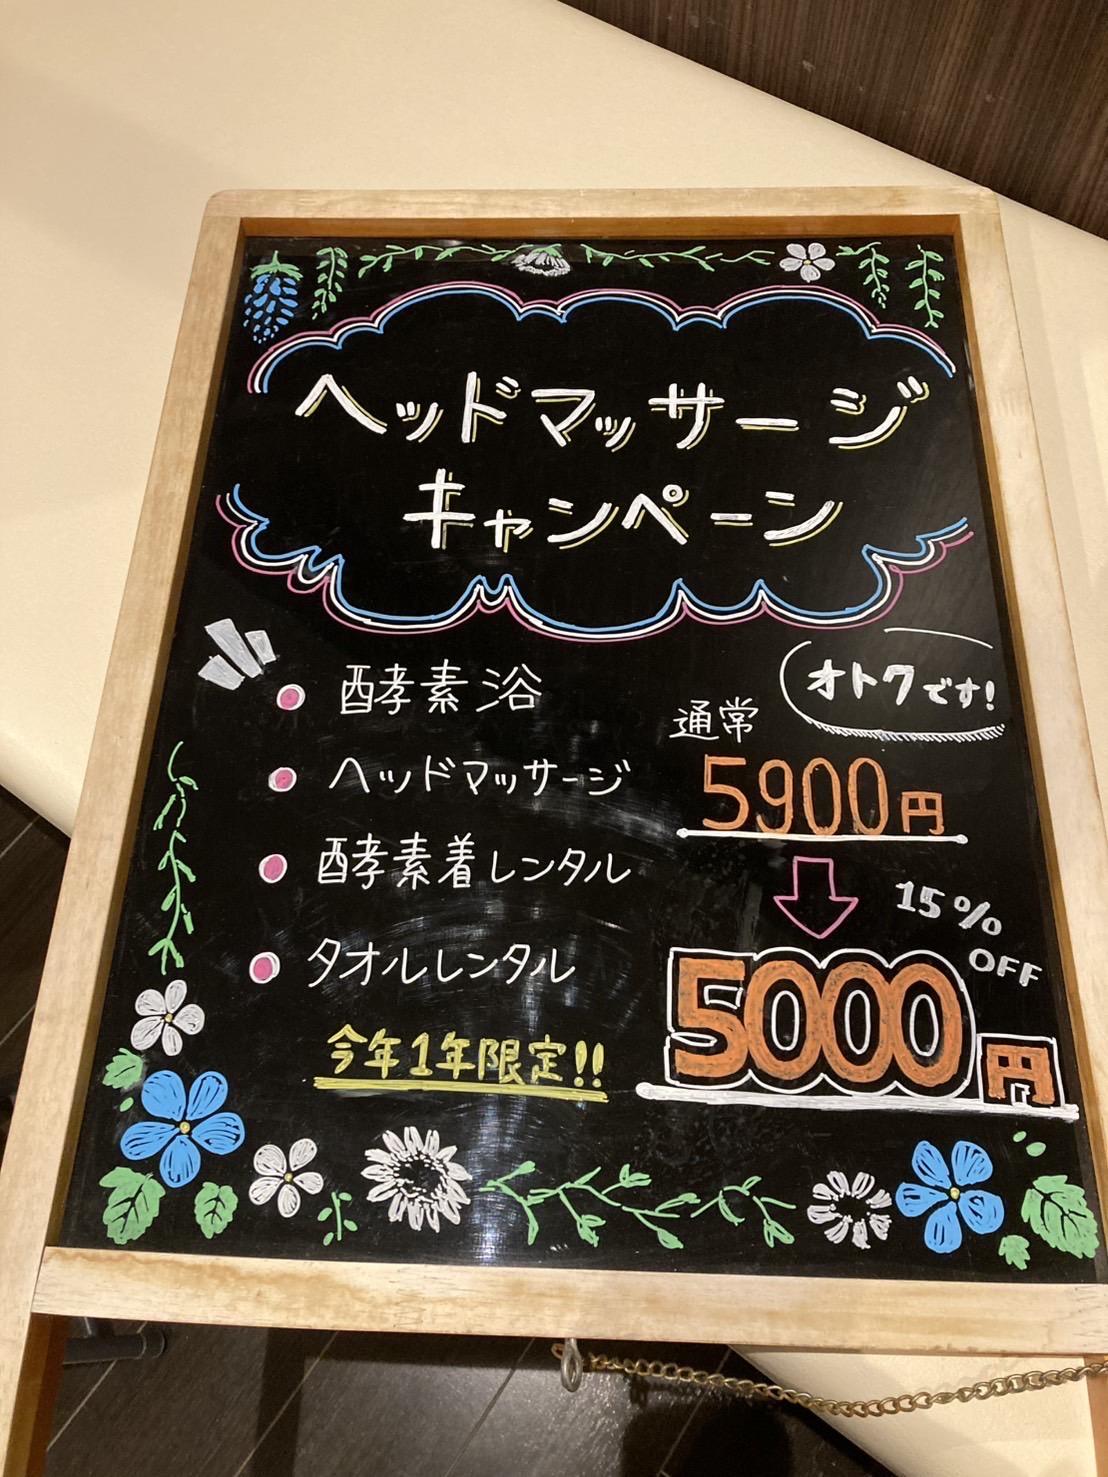 ヘッドマッサージ
キャンペーン
オトクです!
酵素浴
ヘッドマッサージ
酵素着レンタル
タオルレンタル
通常
5900円
15%
OFF
5000円
今年1年限定!!